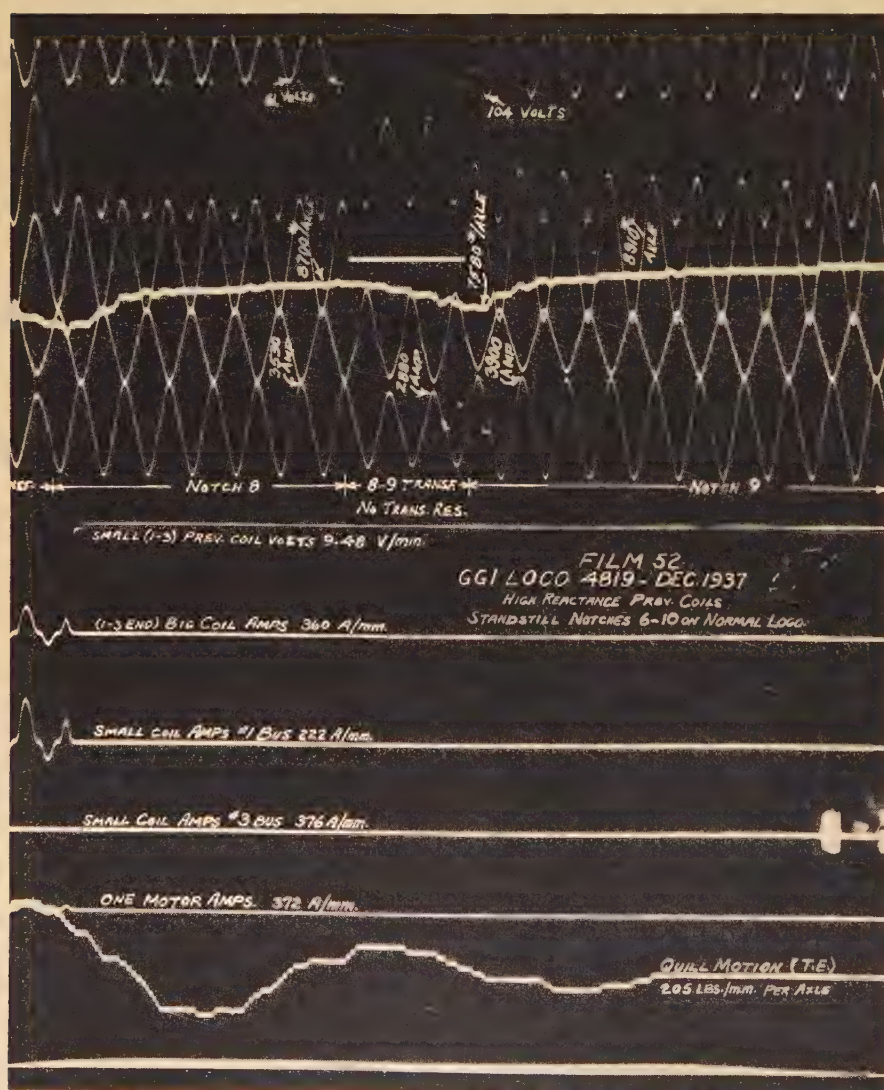 VOLTS
104 VOLTS
8700#/AXLE
7580#/AXLE
8910#
AXLE
3530
AMP
2880
AMP
3300
AMP
REF.
NOTCH 8
8-9 TRANSF
NOTCH 9
NO TRANS. RES.
SMALL (1-3) PREV. COIL VOLTS 9.48 V/mm.
FILM 52
GG1 LOCO 4819 - DEC. 1937
HIGH REACTANCE PREV. COILS
STANDSTILL NOTCHES 6-10 ON NORMAL LOCO.
(1-3 END) BIG COIL AMPS 360 A/mm.
SMALL COIL AMPS #1 BUS 222 A/mm.
SMALL COIL AMPS #3 BUS 376 A/mm.
ONE MOTOR AMPS. 372 A/mm.
QUILL MOTION (T.E.)
205 LBS./mm. PER AXLE